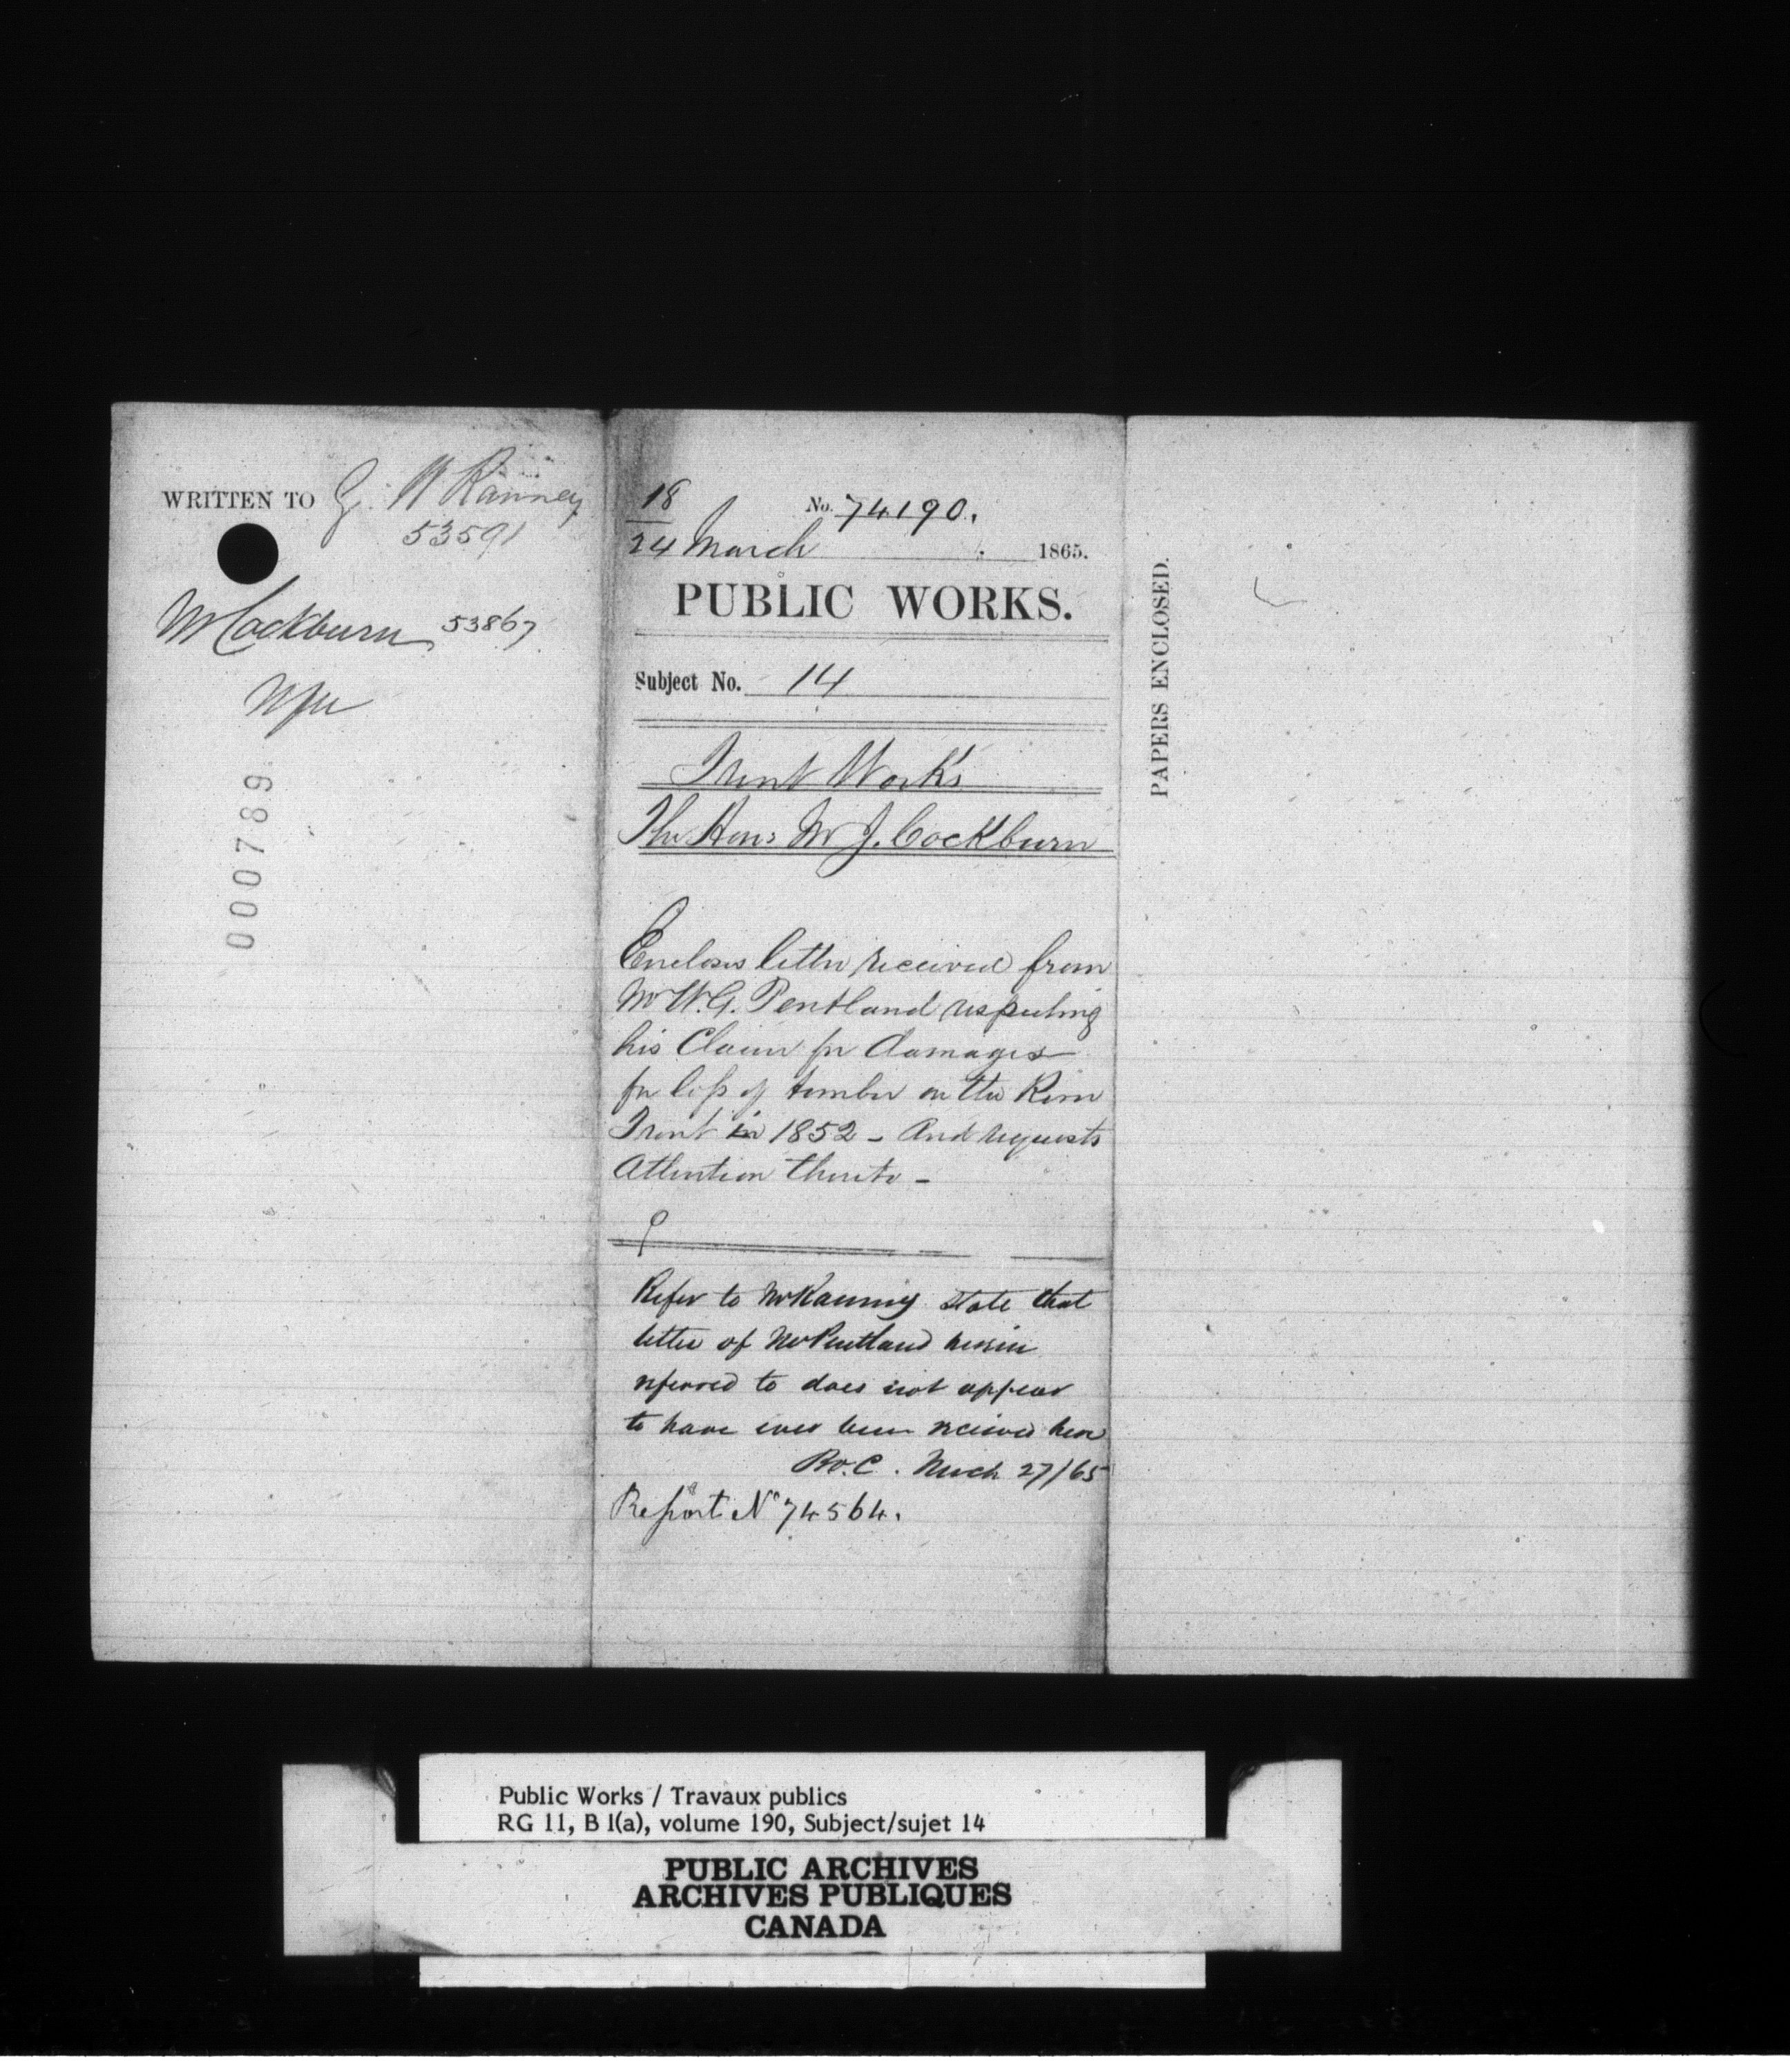 WRITTEN TO G. W Ranney
53591
Mr Cockburn 53867
000789
18
No. 74190.
24 March 1865.
PUBLIC WORKS.
Subject No. 14
Trent Works
The Hon: Mr J. Cockburn
Encloses letter received from
Mr W.G. Pentland respecting
his Claim for damages
for loss of timber on the River
Trent in 1852 - And requests
Attention thereto -
Refer to Mr Ranney state that
letter of Mr Pentland herein
referred to does not appear
to have ever been received here
March 27/65
Report No 74564.
PAPERS ENCLOSED.
Public Works / Travaux publics
RG 11, B 1(a), volume 190, Subject/sujet 14
PUBLIC ARCHIVES
ARCHIVES PUBLIQUES
CANADA